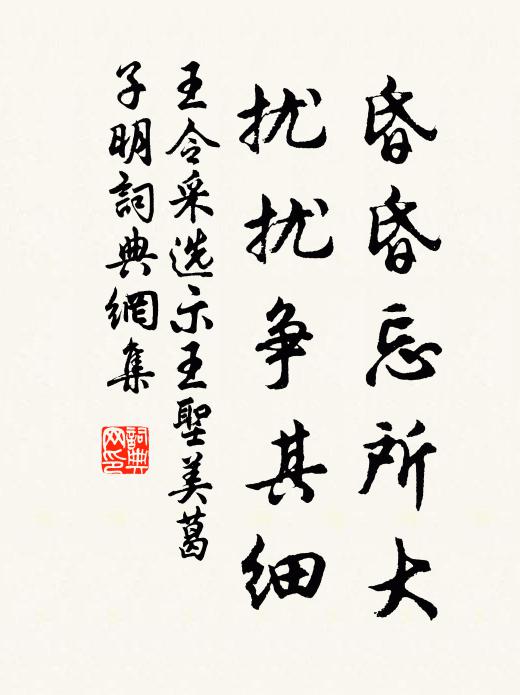 昏昏忘所大
扰扰争其细
王令采选示王聖美葛
子明詞典網集
詞典
网印